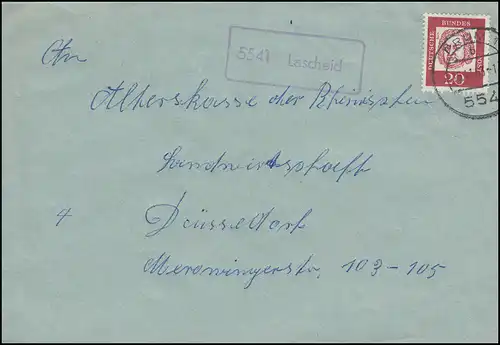 5541 Lascheid
DEUTSCHE BUNDES
20
554
An
Alterskasse der Rheinischen
Landwirtschaft
4 Düsseldorf
Merowingerstr. 103-105